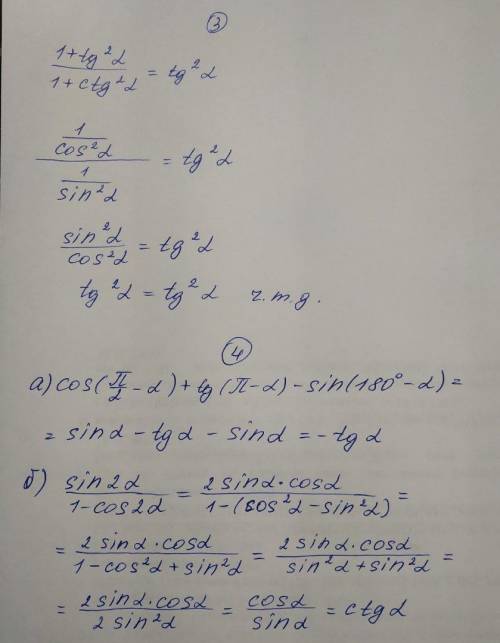 3
(1+tg²α)/(1+ctg²α) = tg²α
(1/cos²α)/(1/sin²α) = tg²α
sin²α/cos²α = tg²α
tg²α = tg²α ч.т.д.
4
а) cos(π/2 - α) + tg(π - α) - sin(180° - α) =
= sinα - tgα - sinα = -tgα
б) sin2α/(1-cos2α) = 2sinα·cosα/(1-(cos²α-sin²α)) =
= 2sinα·cosα/(1-cos²α+sin²α) = 2sinα·cosα/(sin²α+sin²α) =
= 2sinα·cosα/(2sin²α) = cosα/sinα = ctgα